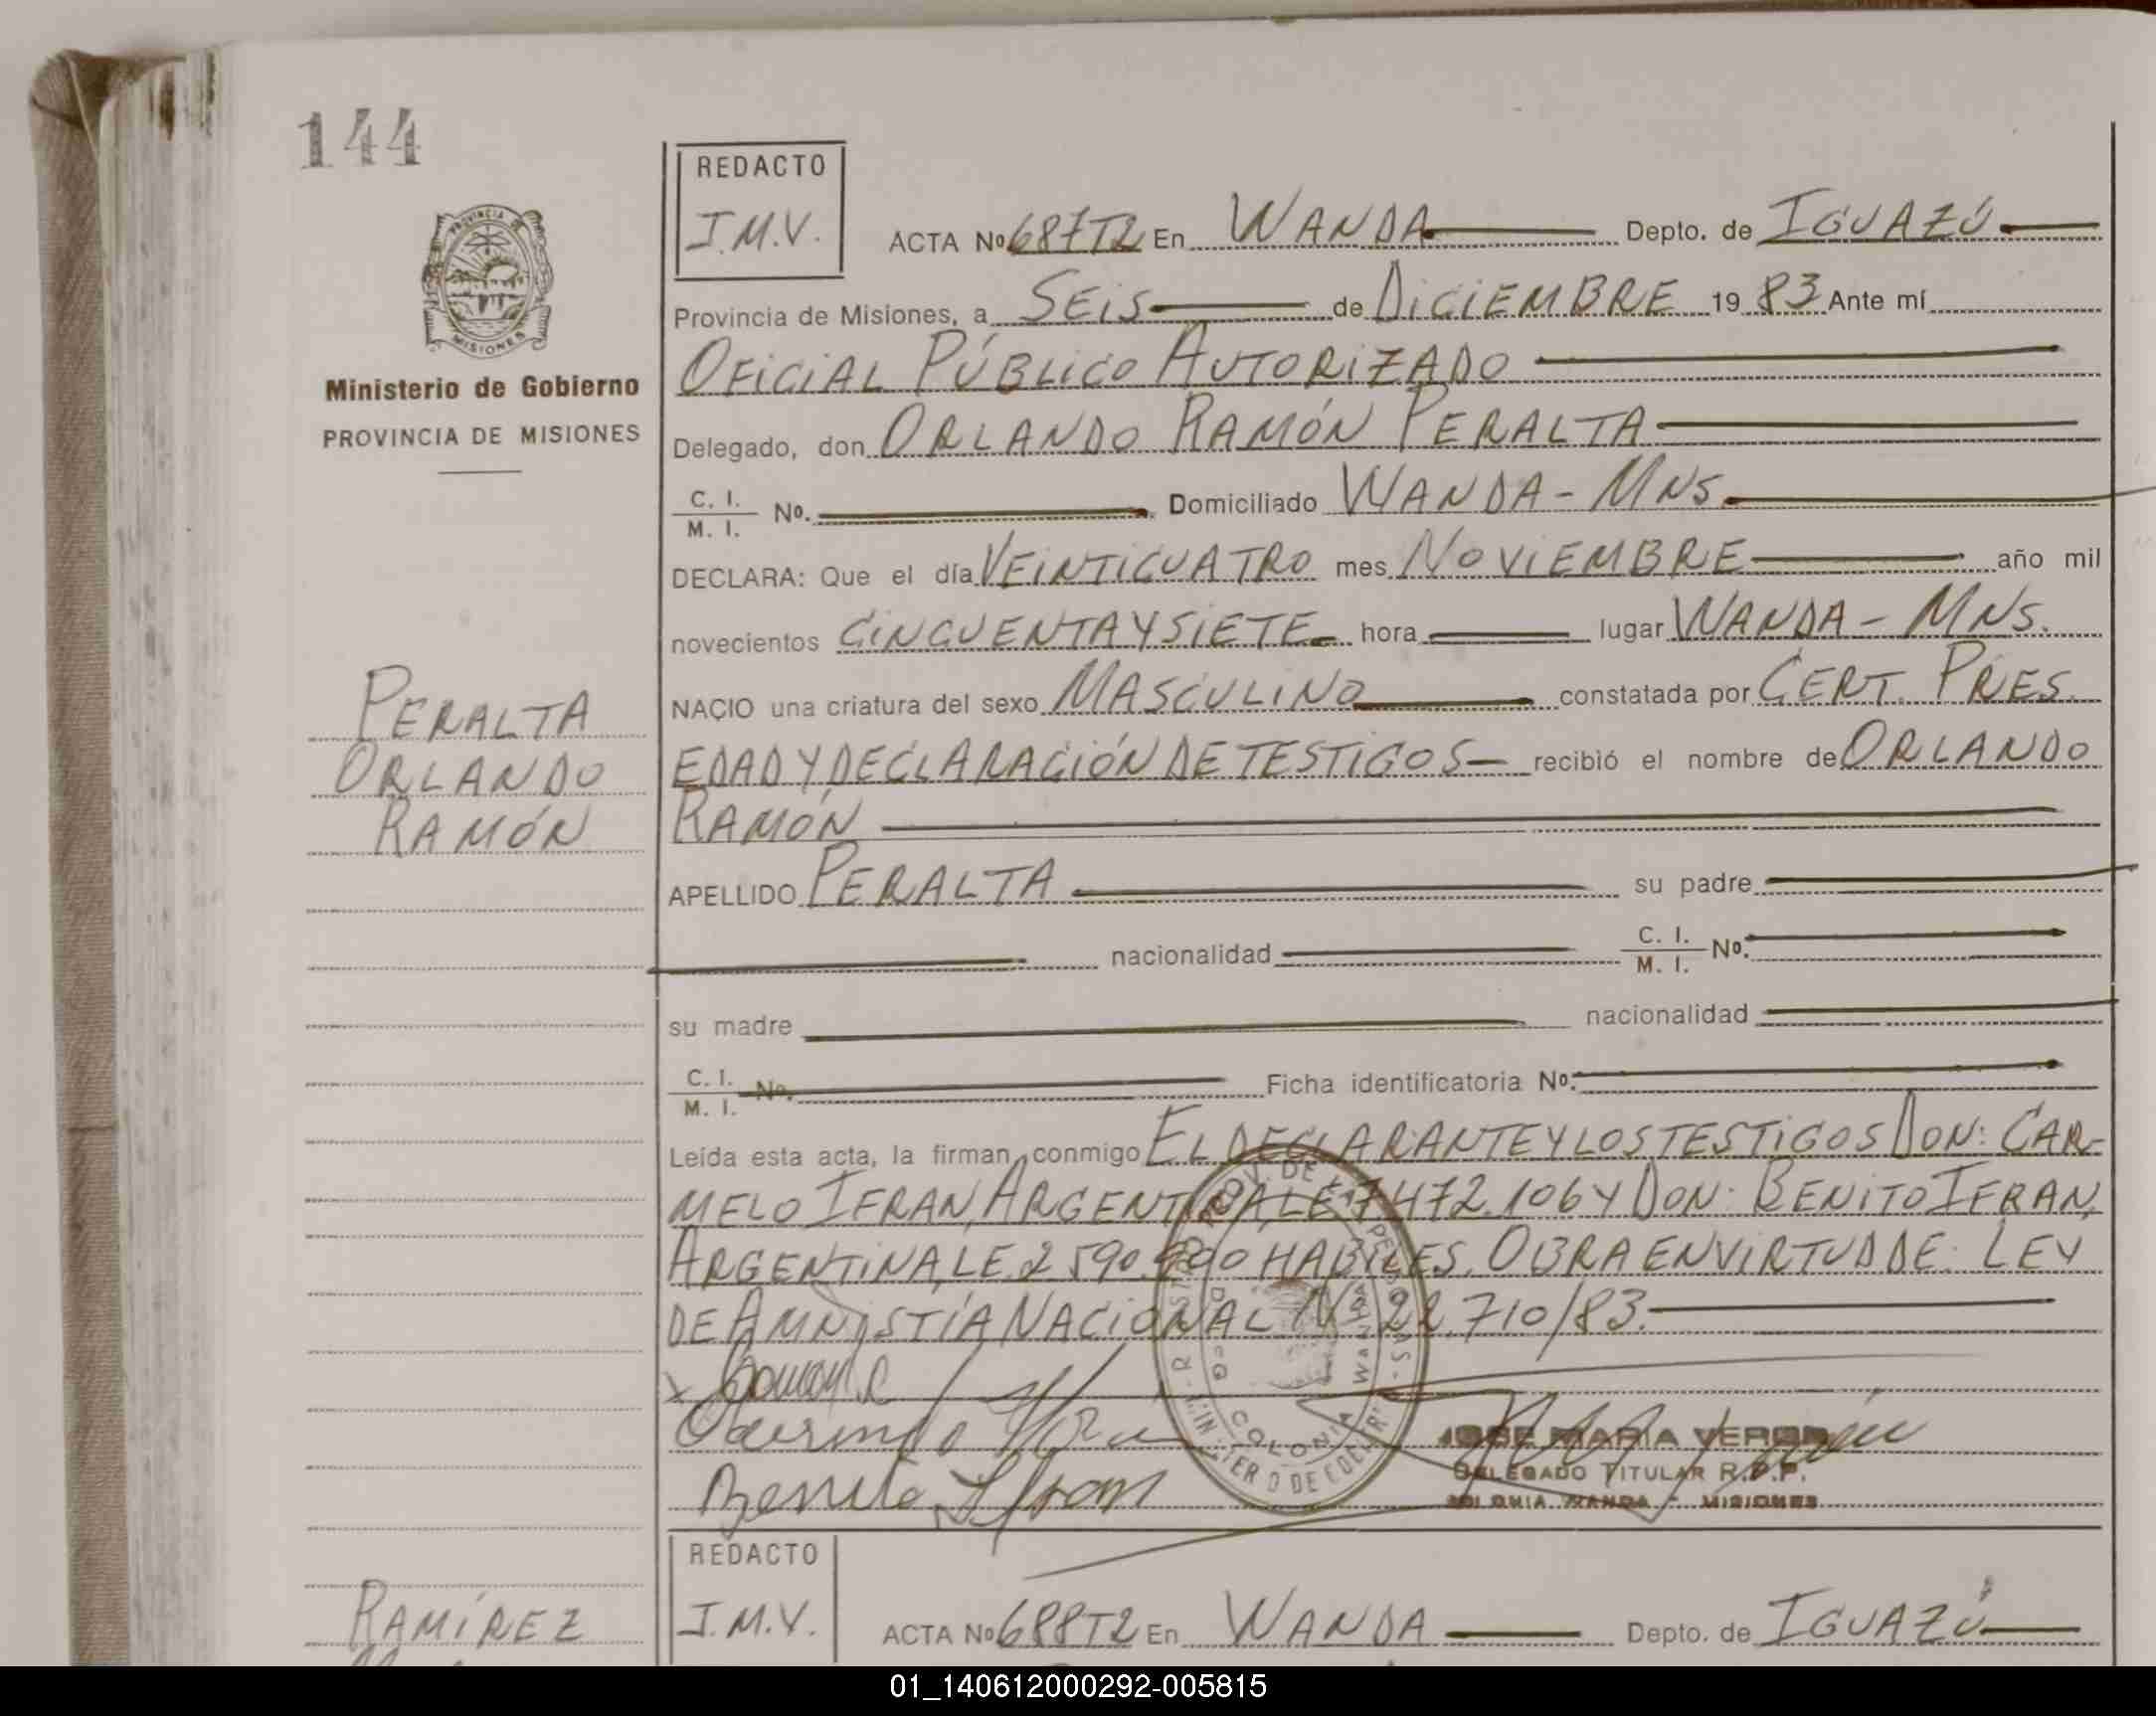 144
PROVINCIA DE
MISIONES
Ministerio de Gobierno
PROVINCIA DE MISIONES
PERALTA
ORLANDO
RAMÓN
REDACTO
J.M.V.
ACTA Nº 687T2 En WANDA Depto. de IGUAZÚ
Provincia de Misiones, a SEIS de DICIEMBRE 1983 Ante mí
OFICIAL PÚBLICO AUTORIZADO
Delegado, don ORLANDO RAMÓN PERALTA
C. I. / M. I. Nº. Domiciliado WANDA - MNS.
DECLARA: Que el día VEINTICUATRO mes NOVIEMBRE año mil
novecientos CINCUENTA Y SIETE hora lugar WANDA - MNS.
NACIO una criatura del sexo MASCULINO constatada por CERT. PRES.
EDAD Y DECLARACIÓN DE TESTIGOS recibió el nombre de ORLANDO
RAMÓN
APELLIDO PERALTA su padre
nacionalidad C. I. / M. I. Nº.
su madre nacionalidad
C. I. / M. I. Nº. Ficha identificatoria Nº.
Leída esta acta, la firman conmigo EL DECLARANTE Y LOS TESTIGOS DON: CAR-
MELO IFRAN, ARGENTINA, LE 7472.106 Y DON: BENITO IFRAN,
ARGENTINA, LE. 2590. HABILES. OBRA EN VIRTUD DE: LEY
DE AMNISTÍA NACIONAL Nº 22.710/83.
Benito Ifran
JOSE MARIA VERON
DELEGADO TITULAR R.P.P.
COLONIA WANDA - MISIONES
REDACTO
J.M.V.
ACTA Nº 688T2 En WANDA Depto. de IGUAZÚ
RAMÍREZ
01_140612000292-005815